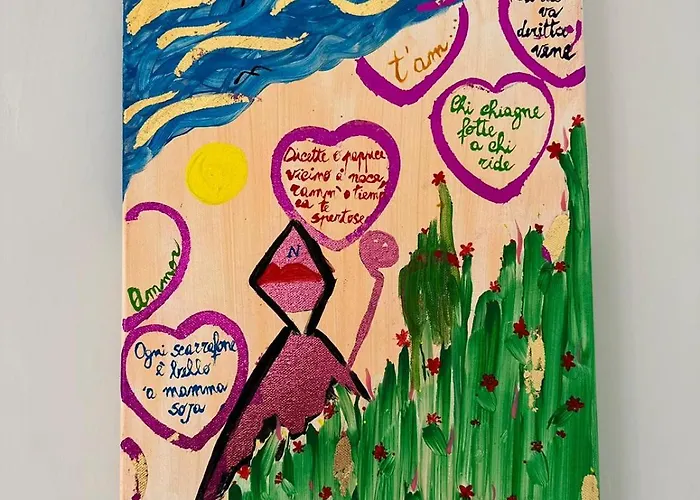 va
deritta
vene
t'am
Chi chiagne
fotte
a chi
ride
Dicette o pappice
vicino â noce,
ramm' o tiemp
ca te
spertose
N
Ammor
Ogni scarrafone
è bello
'a mamma
soja